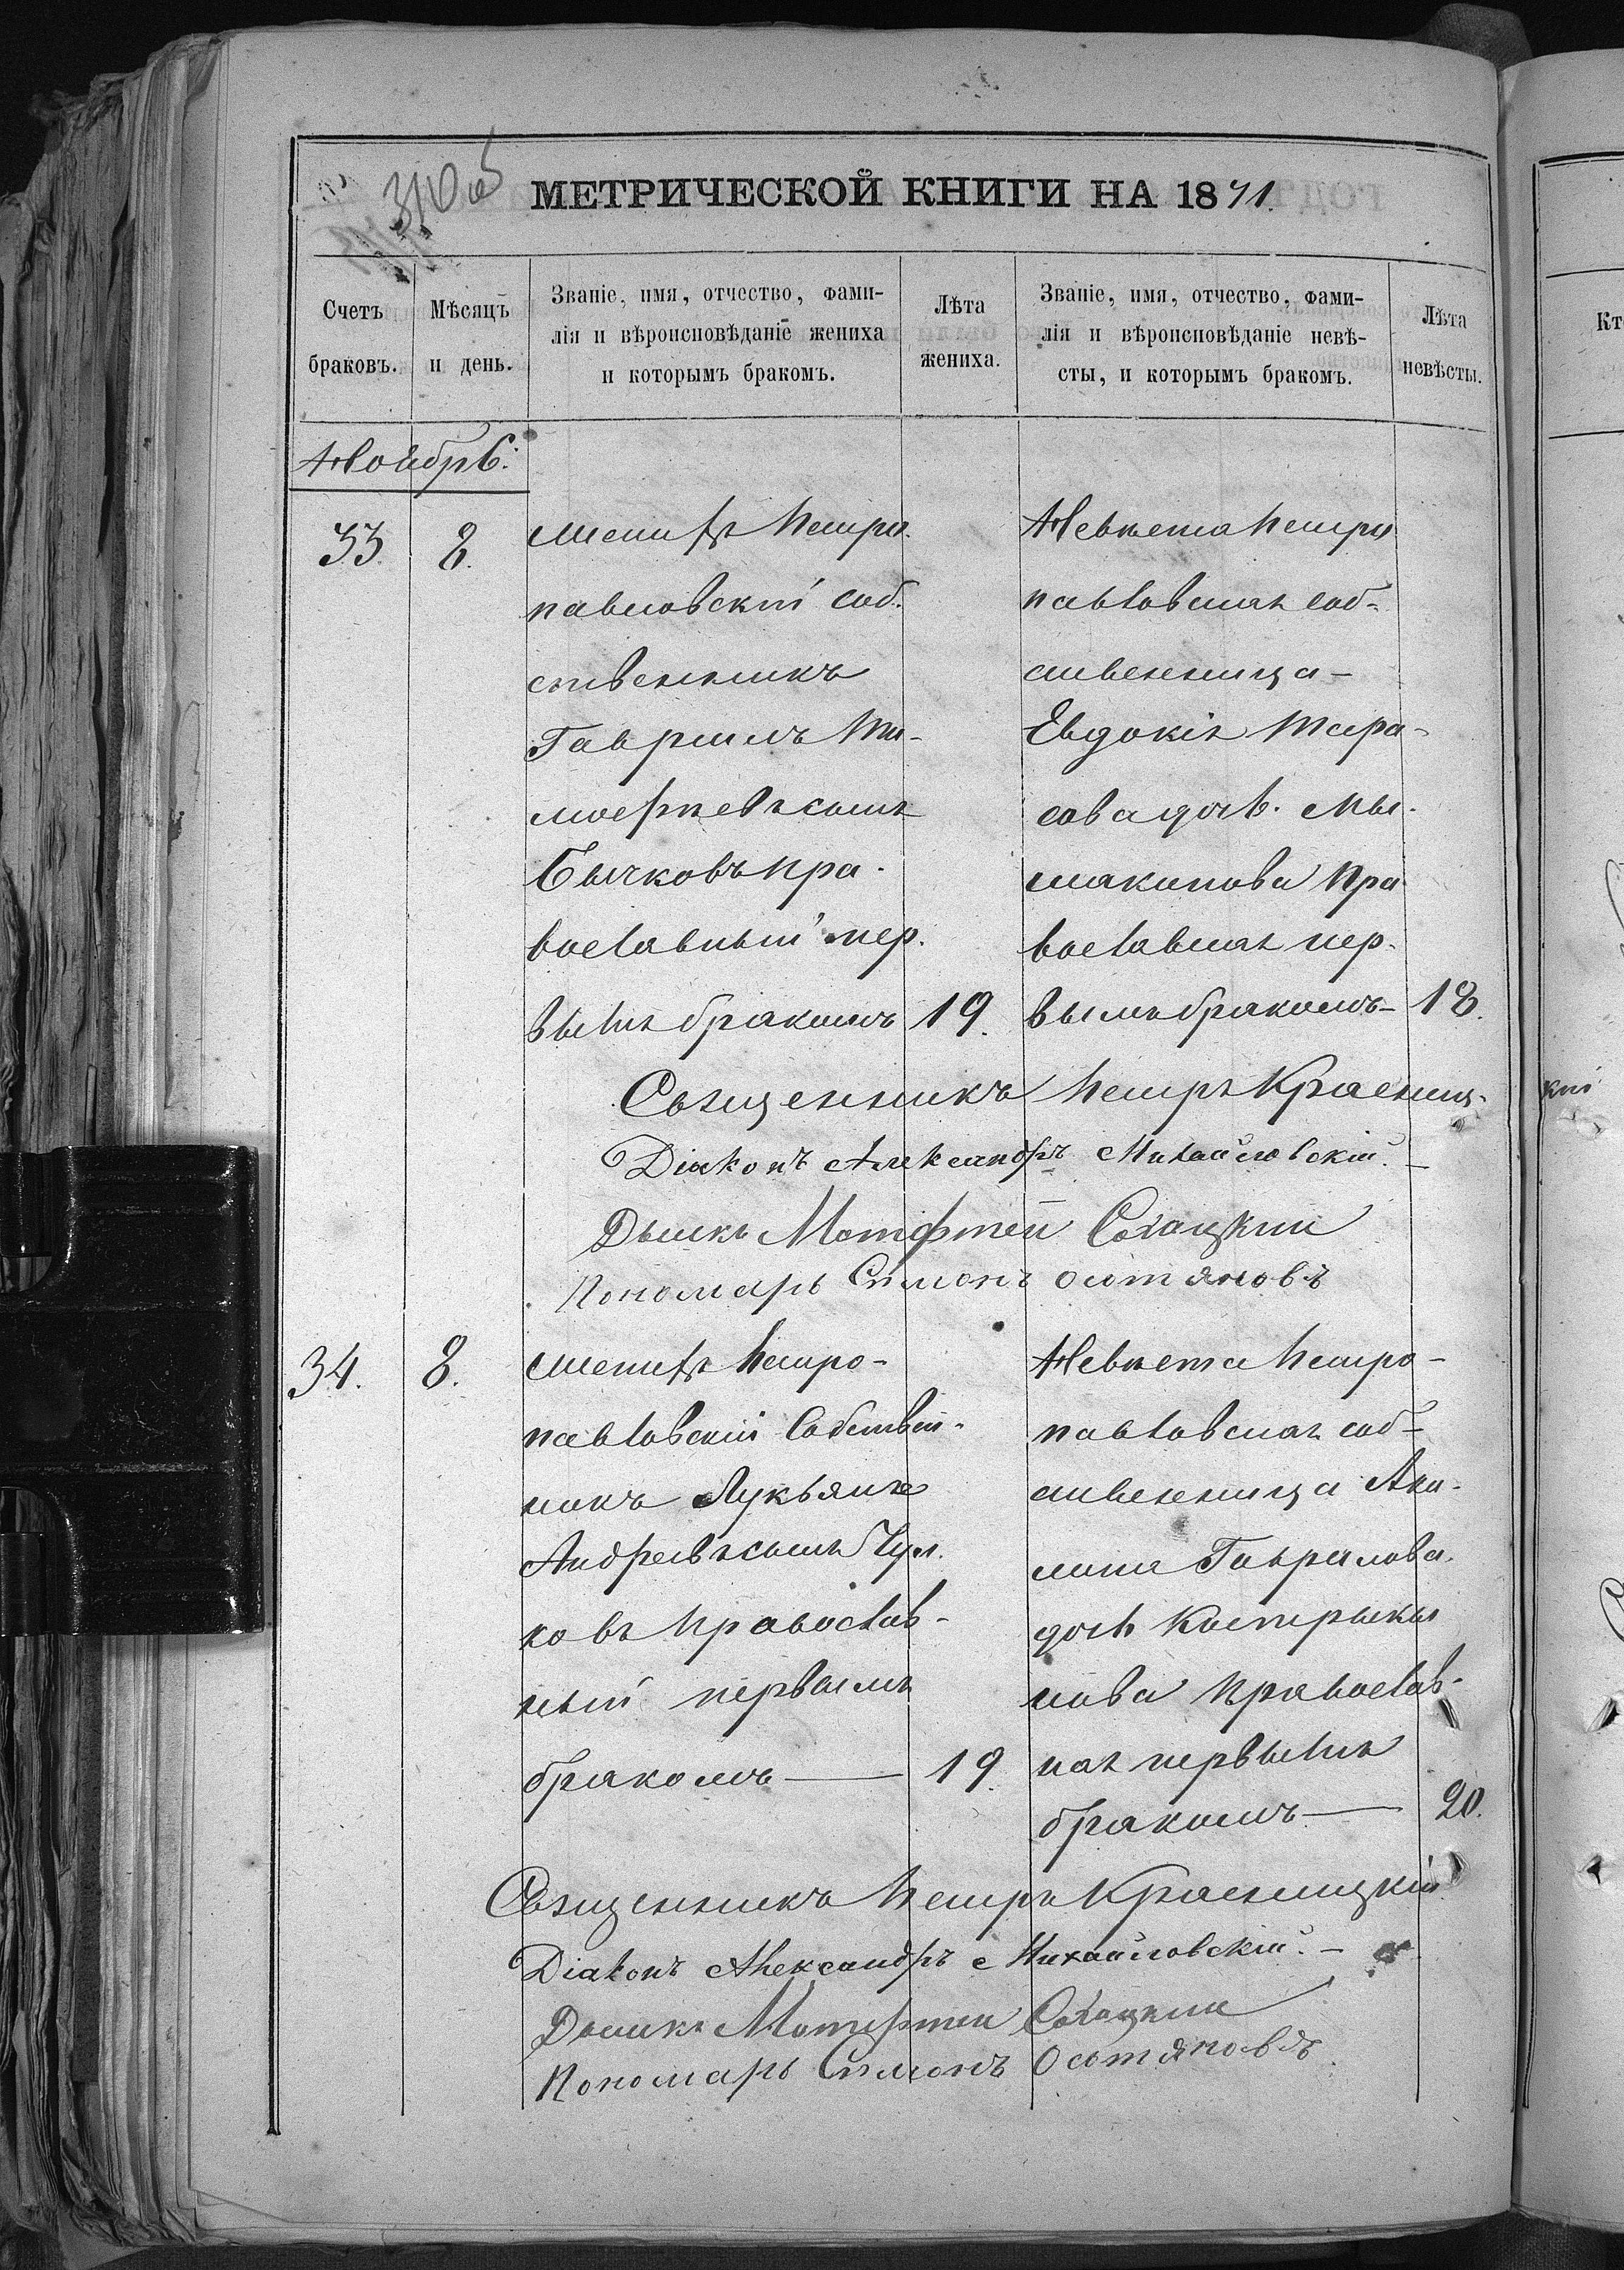 310 об
МЕТРИЧЕСКОЙ КНИГИ НА 1871.
Счетъ браковъ.
Мѣсяцъ и день.
Званіе, имя, отчество, фами-
лія и вѣроисповѣданіе жениха
и которымъ бракомъ.
Лѣта
жениха.
Званіе, имя, отчество, фами-
лія и вѣроисповѣданіе невѣ-
сты, и которымъ бракомъ.
Лѣта
невѣсты.
Ноябрь.
33. 8.
Женихъ Петро
павловскій соб.
ственникъ
Гавріилъ Ти-
моѳѣевъ сынъ
Бычковъ пра-
вославный пер.
вымъ бракомъ 19.
Невѣста Петро
павловская соб-
ственница-
Евдокія Тара-
сова дочь.
православная пер-
вымъ бракомъ- 18.
Священникъ Петръ Красниц-
Діаконъ Александръ Михайловскій.-
Дьякъ Матфтей
Пономарь Симонъ
34. 8.
Женихъ Петро-
павловскій Собствен-
никъ Лукьянъ
Андреевъ сынъ Чул.
ковъ православ-
ный первымъ
бракомъ— 19.
Невѣста Петро-
павловская соб-
ственница Аки-
лина Гаврилова.
дочь Кастрыки
нова православ-
ная первымъ
бракомъ— 20.
Священникъ Петръ Красницкій
Діаконъ Александръ Михайловскій.-
Дьякъ Матфтей
Пономарь Симонъ
Кт
кій